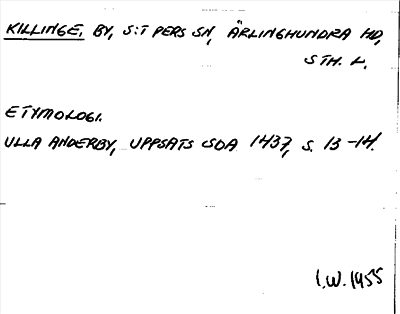 KILLINGE, BY, S:T PERS SN, ÄRLINGHUNDRA HD,
STH. L.
ETYMOLOGI.
ULLA ANDERBY, UPPSATS OSDA 1437, S. 13-14.
I.W. 1955